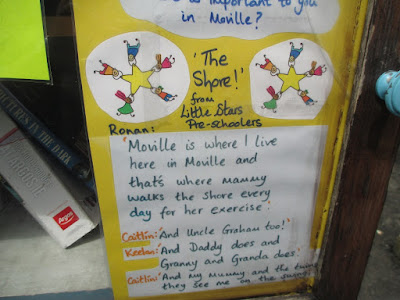 is important to you
in Moville?
'The
Shore!'
from
Little Stars
Pre-schoolers
Ronan:
'Moville is where I live
here in Moville and
that's where mammy
walks the shore every
day for her exercise.'
Caitlin: 'And Uncle Graham too!'
Keelan: 'And Daddy does and
Granny and Granda does'
Caitlin: 'And my Mummy and the twins
they see me on the swing'
PICTURES IN THE DARK
Argos